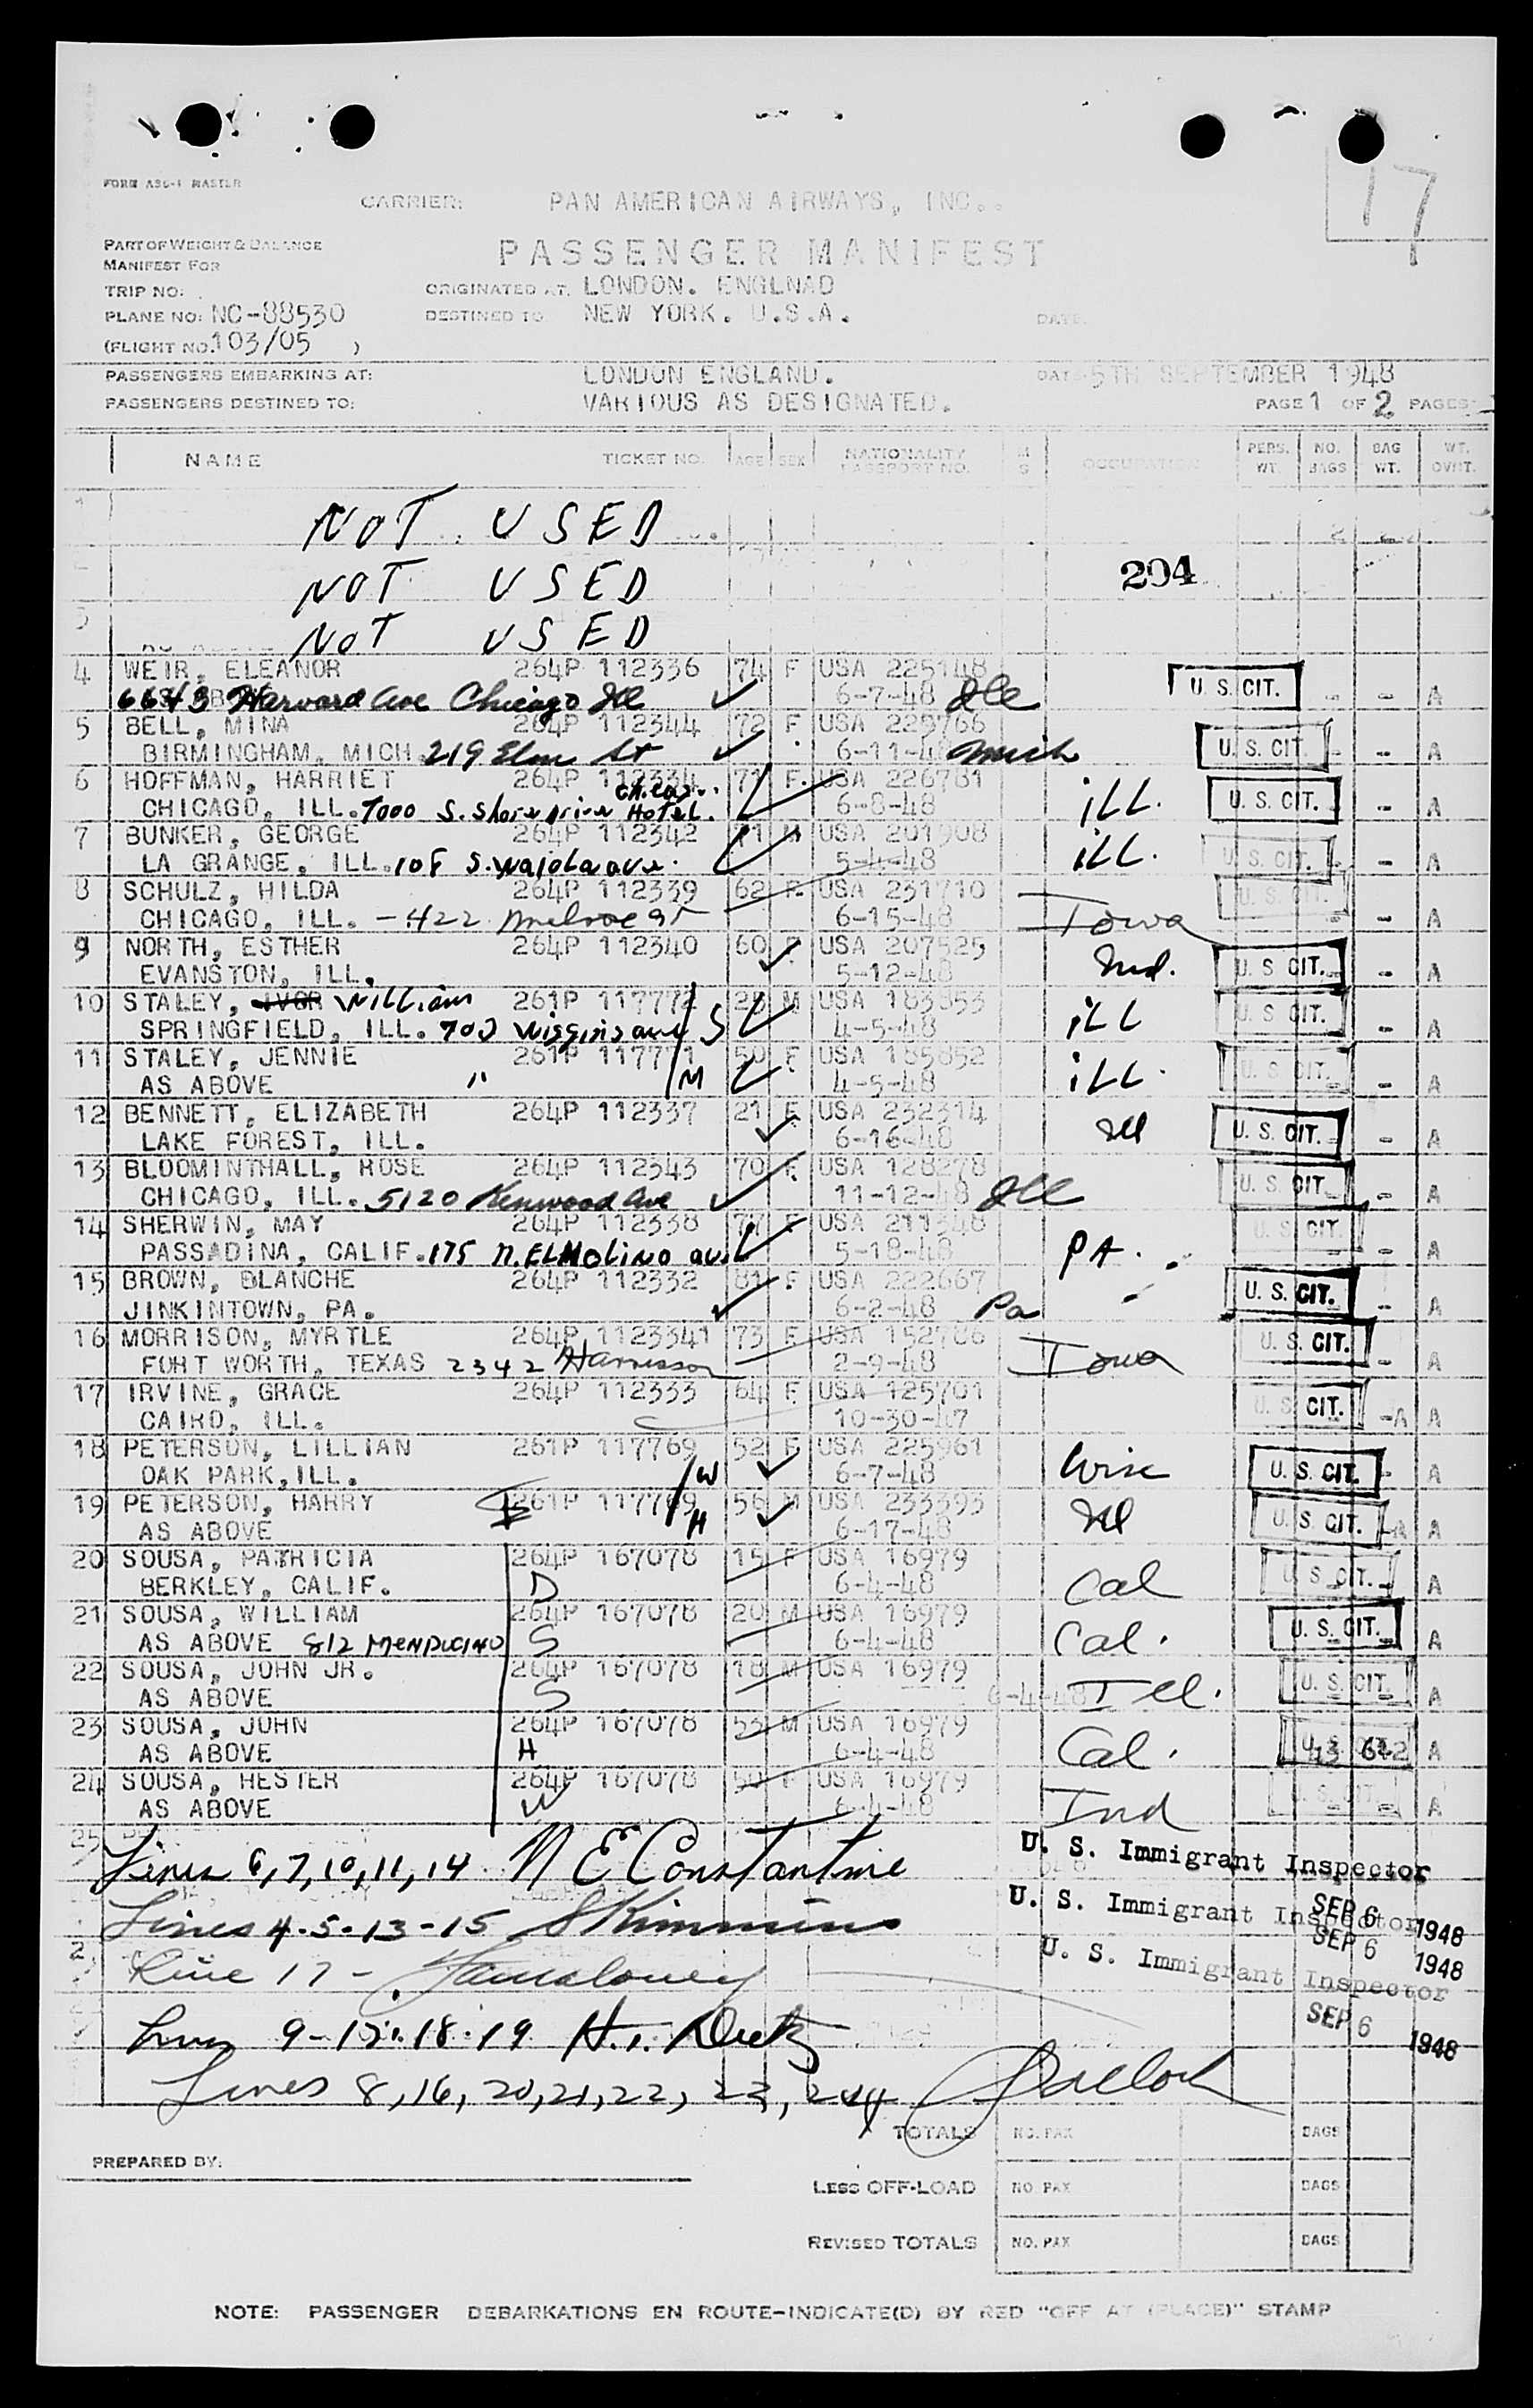 17
FORM A36-1 MASTER
CARRIER: PAN AMERICAN AIRWAYS, INC.
PART OF WEIGHT & BALANCE
MANIFEST FOR
PASSENGER MANIFEST
TRIP NO: ORIGINATED AT: LONDON. ENGLNAD
PLANE NO: NC-88530 DESTINED TO NEW YORK. U.S.A. DATE
(FLIGHT NO. 103/05 )
PASSENGERS EMBARKING AT: LONDON ENGLAND. DATE 5TH SEPTEMBER 1948
PASSENGERS DESTINED TO: VARIOUS AS DESIGNATED. PAGE 1 OF 2 PAGES
NAME TICKET NO. AGE SEX NATIONALITY PASSPORT NO. M S OCCUPATION PERS. WT. NO. BAGS BAG WT. WT. OVHT.
NOT USED
NOT USED 204
NOT USED
4 WEIR, ELEANOR 264P 112336 74 F USA 225148 U. S. CIT.
6643 Harvard Ave Chicago Ill 6-7-48 Ill - - A
5 BELL, MINA 264P 112344 72 F USA 229766 U. S. CIT.
BIRMINGHAM, MICH. 219 Elm St 6-11-48 Mich - A
6 HOFFMAN, HARRIET 264P 112334 71 F USA 226781 U. S. CIT.
CHICAGO, ILL. 7000 S. Shore Drive Hotel. Chicago 6-8-48 ILL. - A
7 BUNKER, GEORGE 264P 112342 71 M USA 201908 U. S. CIT.
LA GRANGE, ILL. 108 S. Waiola ave. 5-4-48 ILL. - A
8 SCHULZ, HILDA 264P 112339 62 F USA 231710 U. S. CIT.
CHICAGO, ILL. - 422 Melrose St 6-15-48 Iowa - A
9 NORTH, ESTHER 264P 112340 60 F USA 207525 U. S. CIT.
EVANSTON, ILL. 5-12-48 Ind. - A
10 STALEY, IVOR William 261P 117772 28 M USA 183853 U. S. CIT.
SPRINGFIELD, ILL. 700 Wiggins ave S 4-5-48 ILL - A
11 STALEY, JENNIE 261P 117771 50 F USA 185852 U. S. CIT.
AS ABOVE " M 4-5-48 ILL. - A
12 BENNETT, ELIZABETH 264P 112337 21 F USA 232314 U. S. CIT.
LAKE FOREST, ILL. 6-16-48 Ill - A
13 BLOOMINTHALL, ROSE 264P 112343 70 F USA 128278 U. S. CIT.
CHICAGO, ILL. 5120 Kenwood Ave 11-12-48 Ill - A
14 SHERWIN, MAY 264P 112338 77 F USA 211348 U. S. CIT.
PASSADINA, CALIF. 175 N. EL MOLINO ave. 5-18-48 PA. - A
15 BROWN, BLANCHE 264P 112332 81 F USA 222667 U. S. CIT.
JINKINTOWN, PA. 6-2-48 Pa - A
16 MORRISON, MYRTLE 264P 1123341 73 F USA 152786 U. S. CIT.
FORT WORTH, TEXAS 2342 Harrison 2-9-48 Iowa - A
17 IRVINE, GRACE 264P 112333 64 F USA 125701 U. S. CIT.
CAIRO, ILL. 10-30-47 -A A
18 PETERSON, LILLIAN 261P 117769 52 F USA 225961 U. S. CIT.
OAK PARK, ILL. W 6-7-48 Wisc - A
19 PETERSON, HARRY 261P 117769 56 M USA 233393 U. S. CIT.
AS ABOVE H 6-17-48 Ill -A A
20 SOUSA, PATRICIA 264P 167078 15 F USA 16979 U. S. CIT.
BERKLEY, CALIF. D 6-4-48 Cal A
21 SOUSA, WILLIAM 264P 167078 20 M USA 16979 U. S. CIT.
AS ABOVE 812 MENDOCINO S 6-4-48 Cal. A
22 SOUSA, JOHN JR. 264P 167078 18 M USA 16979 U. S. CIT.
AS ABOVE S 6-4-48 Ill. A
23 SOUSA, JOHN 264P 167078 53 M USA 16979
AS ABOVE H 6-4-48 Cal. 13 642 A
24 SOUSA, HESTER 264P 167078 50 F USA 16979 U. S. CIT.
AS ABOVE W 6-4-48 Ind A
25
Lines 6, 7, 10, 11, 14 N E Constantine U. S. Immigrant Inspector
Lines 4-5-13-15 Skimmins U. S. Immigrant Inspector SEP 6 1948
SEP 6 1948
Line 17 - U. S. Immigrant Inspector
SEP 6 1948
Lines 9-12-18-19
Lines 8, 16, 20, 21, 22, 23, 24
TOTALS NO. PAX BAGS
PREPARED BY:
LESS OFF-LOAD NO. PAX BAGS
REVISED TOTALS NO. PAX BAGS
NOTE: PASSENGER DEBARKATIONS EN ROUTE-INDICATE(D) BY RED "OFF AT (PLACE)" STAMP